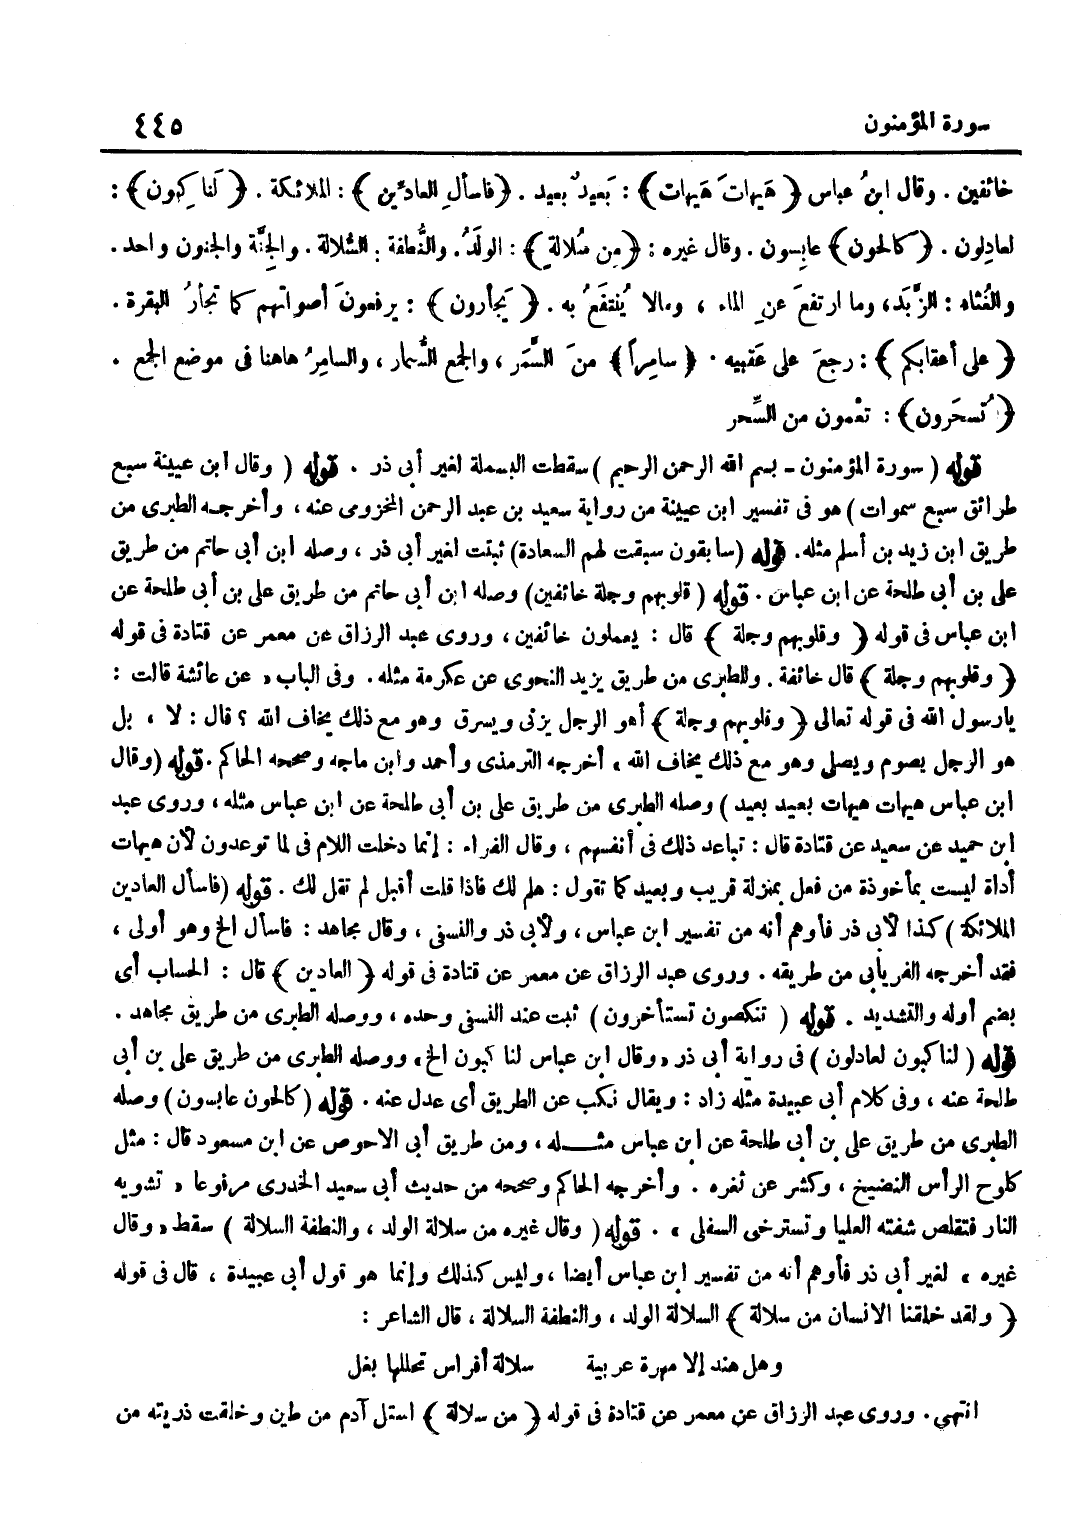 سورة المؤمنون ٤٤٥
خائفين . وقال ابنُ عباس ﴿ هَيهاتَ هَيهات ﴾ : بَعيدٌ بعيد . ﴿فاسألِ العادّين ﴾ : الملائكة . ﴿ لَناكِبون ﴾ :
لعادِلون . ﴿ كالحون﴾ عابِسون . وقال غيره : ﴿من سُلالةٍ ﴾ : الولَدُ . والنُّطفة : السُّلالة . والجِنَّة والجنون واحد .
والغُثاء : الزَّبَد ، وما ارتفعَ عنِ الماء ، ومالا يُنتفَعُ به . ﴿ يَجأرون ﴾ : يرفعونَ أصواتهم كما تجأرُ البقرة .
﴿ على أعقابكم ﴾ : رجعَ على عَقبيه . ﴿ سامِراً ﴾ منَ السَّمَر ، والجمع السُّمار ، والسامرُ هاهنا فى موضع الجمع .
﴿ تُسحَرون ﴾ : تعْمون من السِّحر
قوله ( سورة المؤمنون - بسم الله الرحمن الرحيم ) سقطت البسملة لغير أبى ذر . قوله ( وقال ابن عيينة سبع
طرائق سبع سموات ) هو فى تفسير ابن عيينة من رواية سعيد بن عبد الرحمن المخزومى عنه ، وأخرجه الطبرى من
طريق ابن زيد بن أسلم مثله . قوله (سابقون سبقت لهم السعادة) ثبتت لغير أبى ذر ، وصله ابن أبى حاتم من طريق
على بن أبى طلحة عن ابن عباس . قوله ( قلوبهم وجلة خائفين) وصله ابن أبى حاتم من طريق على بن أبى طلحة عن
ابن عباس فى قوله ﴿ وقلوبهم وجلة ﴾ قال : يعملون خائفين ، وروى عبد الرزاق عن معمر عن قتادة فى قوله
﴿ وقلوبهم وجلة ﴾ قال خائفة . وللطبرى من طريق يزيد النحوى عن عكرمة مثله . وفى الباب « عن عائشة قالت :
يارسول الله فى قوله تعالى ﴿ وقلوبهم وجلة ﴾ أهو الرجل يزنى ويسرق وهو مع ذلك يخاف الله ؟ قال : لا ، بل
هو الرجل يصوم ويصلى وهو مع ذلك يخاف الله » أخرجه الترمذى وأحمد وابن ماجه وصححه الحاكم . قوله (وقال
ابن عباس هيهات هيهات بعيد بعيد ) وصله الطبرى من طريق على بن أبى طلحة عن ابن عباس مثله ، وروى عبد
ابن حميد عن سعيد عن قتادة قال : تباعد ذلك فى أنفسهم ، وقال الفراء : إنما دخلت اللام فى لما توعدون لأن هيهات
أداة ليست بمأخوذة من فعل بمنزلة قريب وبعيد كما تقول : هلم لك فاذا قلت أقبل لم تقل لك . قوله (فاسأل العادين
الملائكة ) كذا لأبى ذر فأوهم أنه من تفسير ابن عباس ، ولأبى ذر والنسفى ، وقال مجاهد : فاسأل الخ وهو أولى ،
فقد أخرجه الفريابى من طريقه . وروى عبد الرزاق عن معمر عن قتادة فى قوله ﴿ العادين ﴾ قال : الحساب أى
بضم أوله والتشديد . قوله ( تنكصون تستأخرون ) ثبت عند النسفى وحده ، ووصله الطبرى من طريق مجاهد .
قوله ( لناكبون لعادلون ) فى رواية أبى ذر « وقال ابن عباس لناكبون الخ » ووصله الطبرى من طريق على بن أبى
طلحة عنه ، وفى كلام أبى عبيدة مثله زاد : ويقال نكب عن الطريق أى عدل عنه . قوله ( كالحون عابسون ) وصله
الطبرى من طريق على بن أبى طلحة عن ابن عباس مثله ، ومن طريق أبى الاحوص عن ابن مسعود قال : مثل
كلوح الرأس النضيخ ، وكشر عن ثغره . وأخرجه الحاكم وصححه من حديث أبى سعيد الخدرى مرفوعا « تشويه
النار فتقلص شفته العليا وتسترخى السفلى » . قوله ( وقال غيره من سلالة الولد ، والنطفة السلالة ) سقط « وقال
غيره » لغير أبى ذر فأوهم أنه من تفسير ابن عباس أيضا ، وليس كذلك وإنما هو قول أبى عبيدة ، قال فى قوله
﴿ ولقد خلقنا الانسان من سلالة ﴾ السلالة الولد ، والنطفة السلالة ، قال الشاعر :
وهل هند إلا مهرة عربية سلالة أفراس تحللها بغل
انتهى . وروى عبد الرزاق عن معمر عن قتادة فى قوله ﴿ من سلالة ﴾ استل آدم من طين وخلقت ذريته من